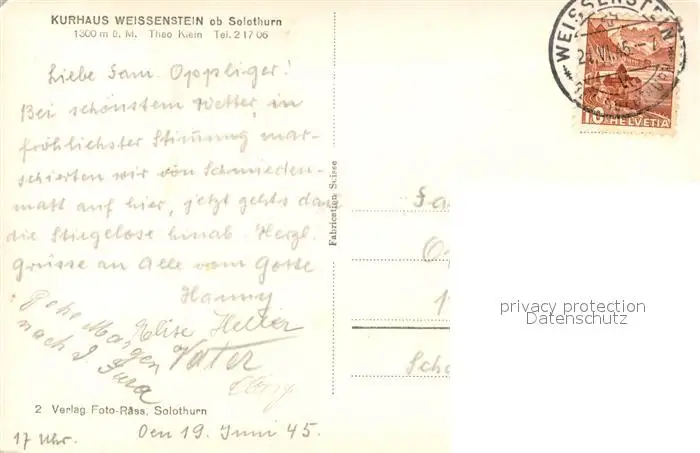 KURHAUS WEISSENSTEIN ob Solothurn
1300 m ü. M. Theo Klein Tel. 2 17 06
Liebe Fam. Oppliger!
Bei schönstem Wetter, in
fröhlichster Stimmung mar-
schierten wir von Schmieden-
matt auf hier, jetzt gehts dann
die Stiegelose hinab. Herzl.
Grüsse an Alle vom Gotte
Hanny
Elise Heller
Vater
: Gehe Morgen
nach d. Jura
2 Verlag Foto-Räss, Solothurn
17 Uhr. Den 19. Juni 45.
Fabrication Suisse
WEISSENSTEIN
10 HELVETIA
Fa
O
1
Sch
privacy protection
Datenschutz